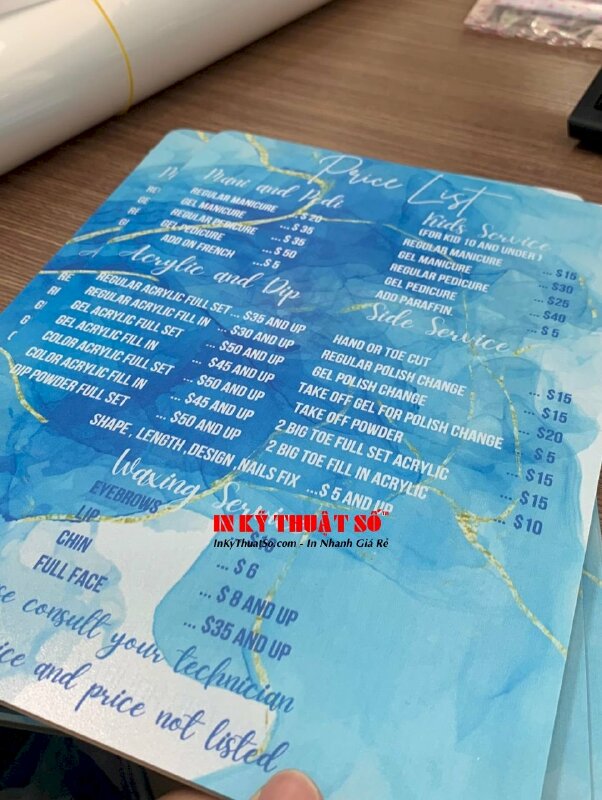 Price List
Mani and Pedi
REGULAR MANICURE ... $ 20
GEL MANICURE ... $ 35
REGULAR PEDICURE ... $ 35
GEL PEDICURE ... $ 50
ADD ON FRENCH ...$ 5
Acrylic and Dip
REGULAR ACRYLIC FULL SET ... $35 AND UP
REGULAR ACRYLIC FILL IN ... $30 AND UP
GEL ACRYLIC FULL SET ... $50 AND UP
GEL ACRYLIC FILL IN ... $45 AND UP
COLOR ACRYLIC FULL SET ... $50 AND UP
COLOR ACRYLIC FILL IN ... $45 AND UP
DIP POWDER FULL SET ... $50 AND UP
SHAPE , LENGTH , DESIGN , NAILS FIX ...$ 5 AND UP
Kids Service
(FOR KID 10 AND UNDER )
REGULAR MANICURE ... $15
GEL MANICURE ... $30
REGULAR PEDICURE ... $25
GEL PEDICURE ... $40
ADD PARAFFIN. ... $ 5
Side Service
HAND OR TOE CUT ... $15
REGULAR POLISH CHANGE ... $15
GEL POLISH CHANGE ... $20
TAKE OFF GEL FOR POLISH CHANGE ... $ 5
TAKE OFF POWDER ... $15
2 BIG TOE FULL SET ACRYLIC ... $15
2 BIG TOE FILL IN ACRYLIC ... $10
Waxing
EYEBROWS
LIP ... $ 6
CHIN ... $ 8 AND UP
FULL FACE ... $35 AND UP
consult your technician
and price not listed
IN KỸ THUẬT SỐ
InKyThuatSo.com - In Nhanh Giá Rẻ